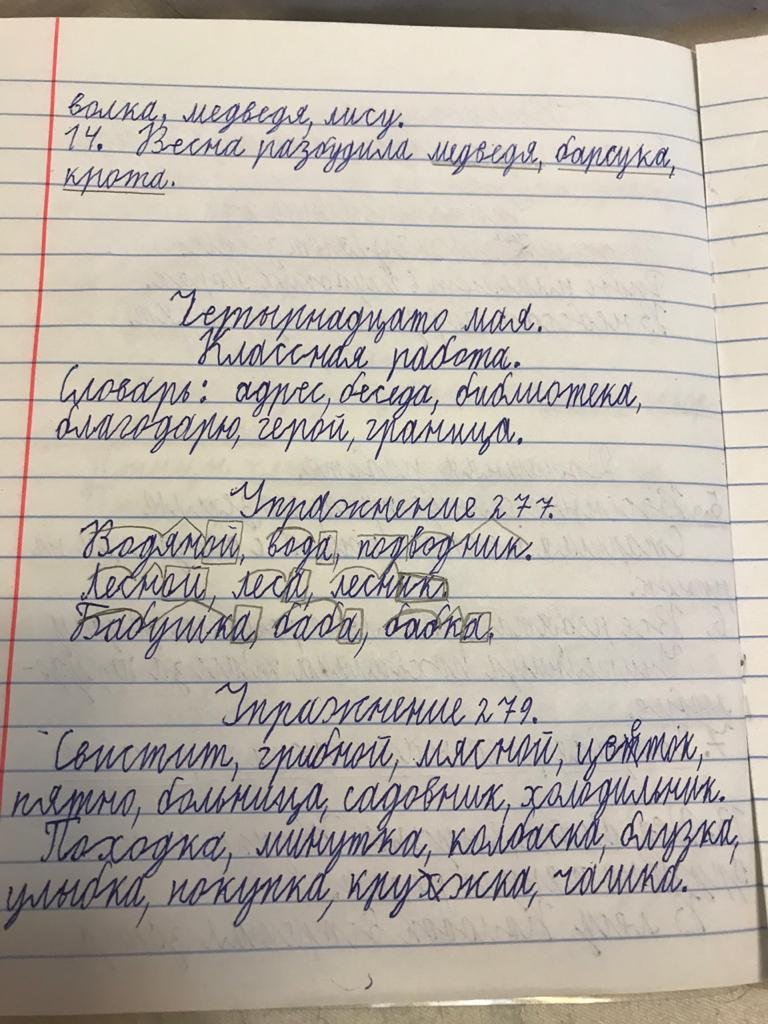 волка, медведя, лису.
14. Весна разбудила медведя, барсука,
крота.
Четырнадцато мая.
Классная работа.
Словарь: адрес, беседа, библиотека,
благодарю, герой, граница.
Упражнение 277.
Водяной, вода, подводник.
Лесной, леса, лесник.
Бабушка, баба, бабка.
Упражнение 279.
Свистит, грибной, мясной, цветок,
пятно, больница, садовник, холодильник.
Походка, минутка, колбаска, блузка,
улыбка, покупка, кружка, чашка.